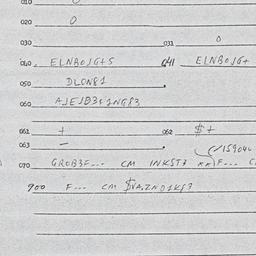 020 0
030 031 0
040 ELNBOJG+S 041 ELNBOJG+
050 DLON81
060 AJEJB3F1NG83
061 + 062 $+
063 —
070 GROB3F--- CM INKST3 F---
900 F--- CM $VA.ZND1KS7